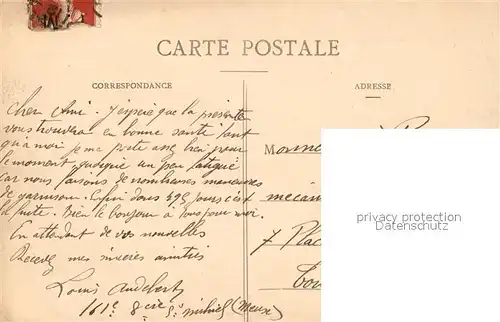 CARTE POSTALE
CORRESPONDANCE
ADRESSE
Cher Ami. J'espère que la présente
vous trouvera en bonne santé tant
qu'à moi je me porte assez bien pour
le moment quoique un peu fatigué
car nous faisons de nombreuses manœuvres
de garnison. Enfin dans 595 jours c'est
la fuite. Bien le bonjour à tous pour moi.
En attendant de vos nouvelles
Recevez mes sincères amitiés
Louis Audebert
161e 8 cie St Mihiel (Meuse)
Mon
mécan
7 Plac
Tou
privacy protection